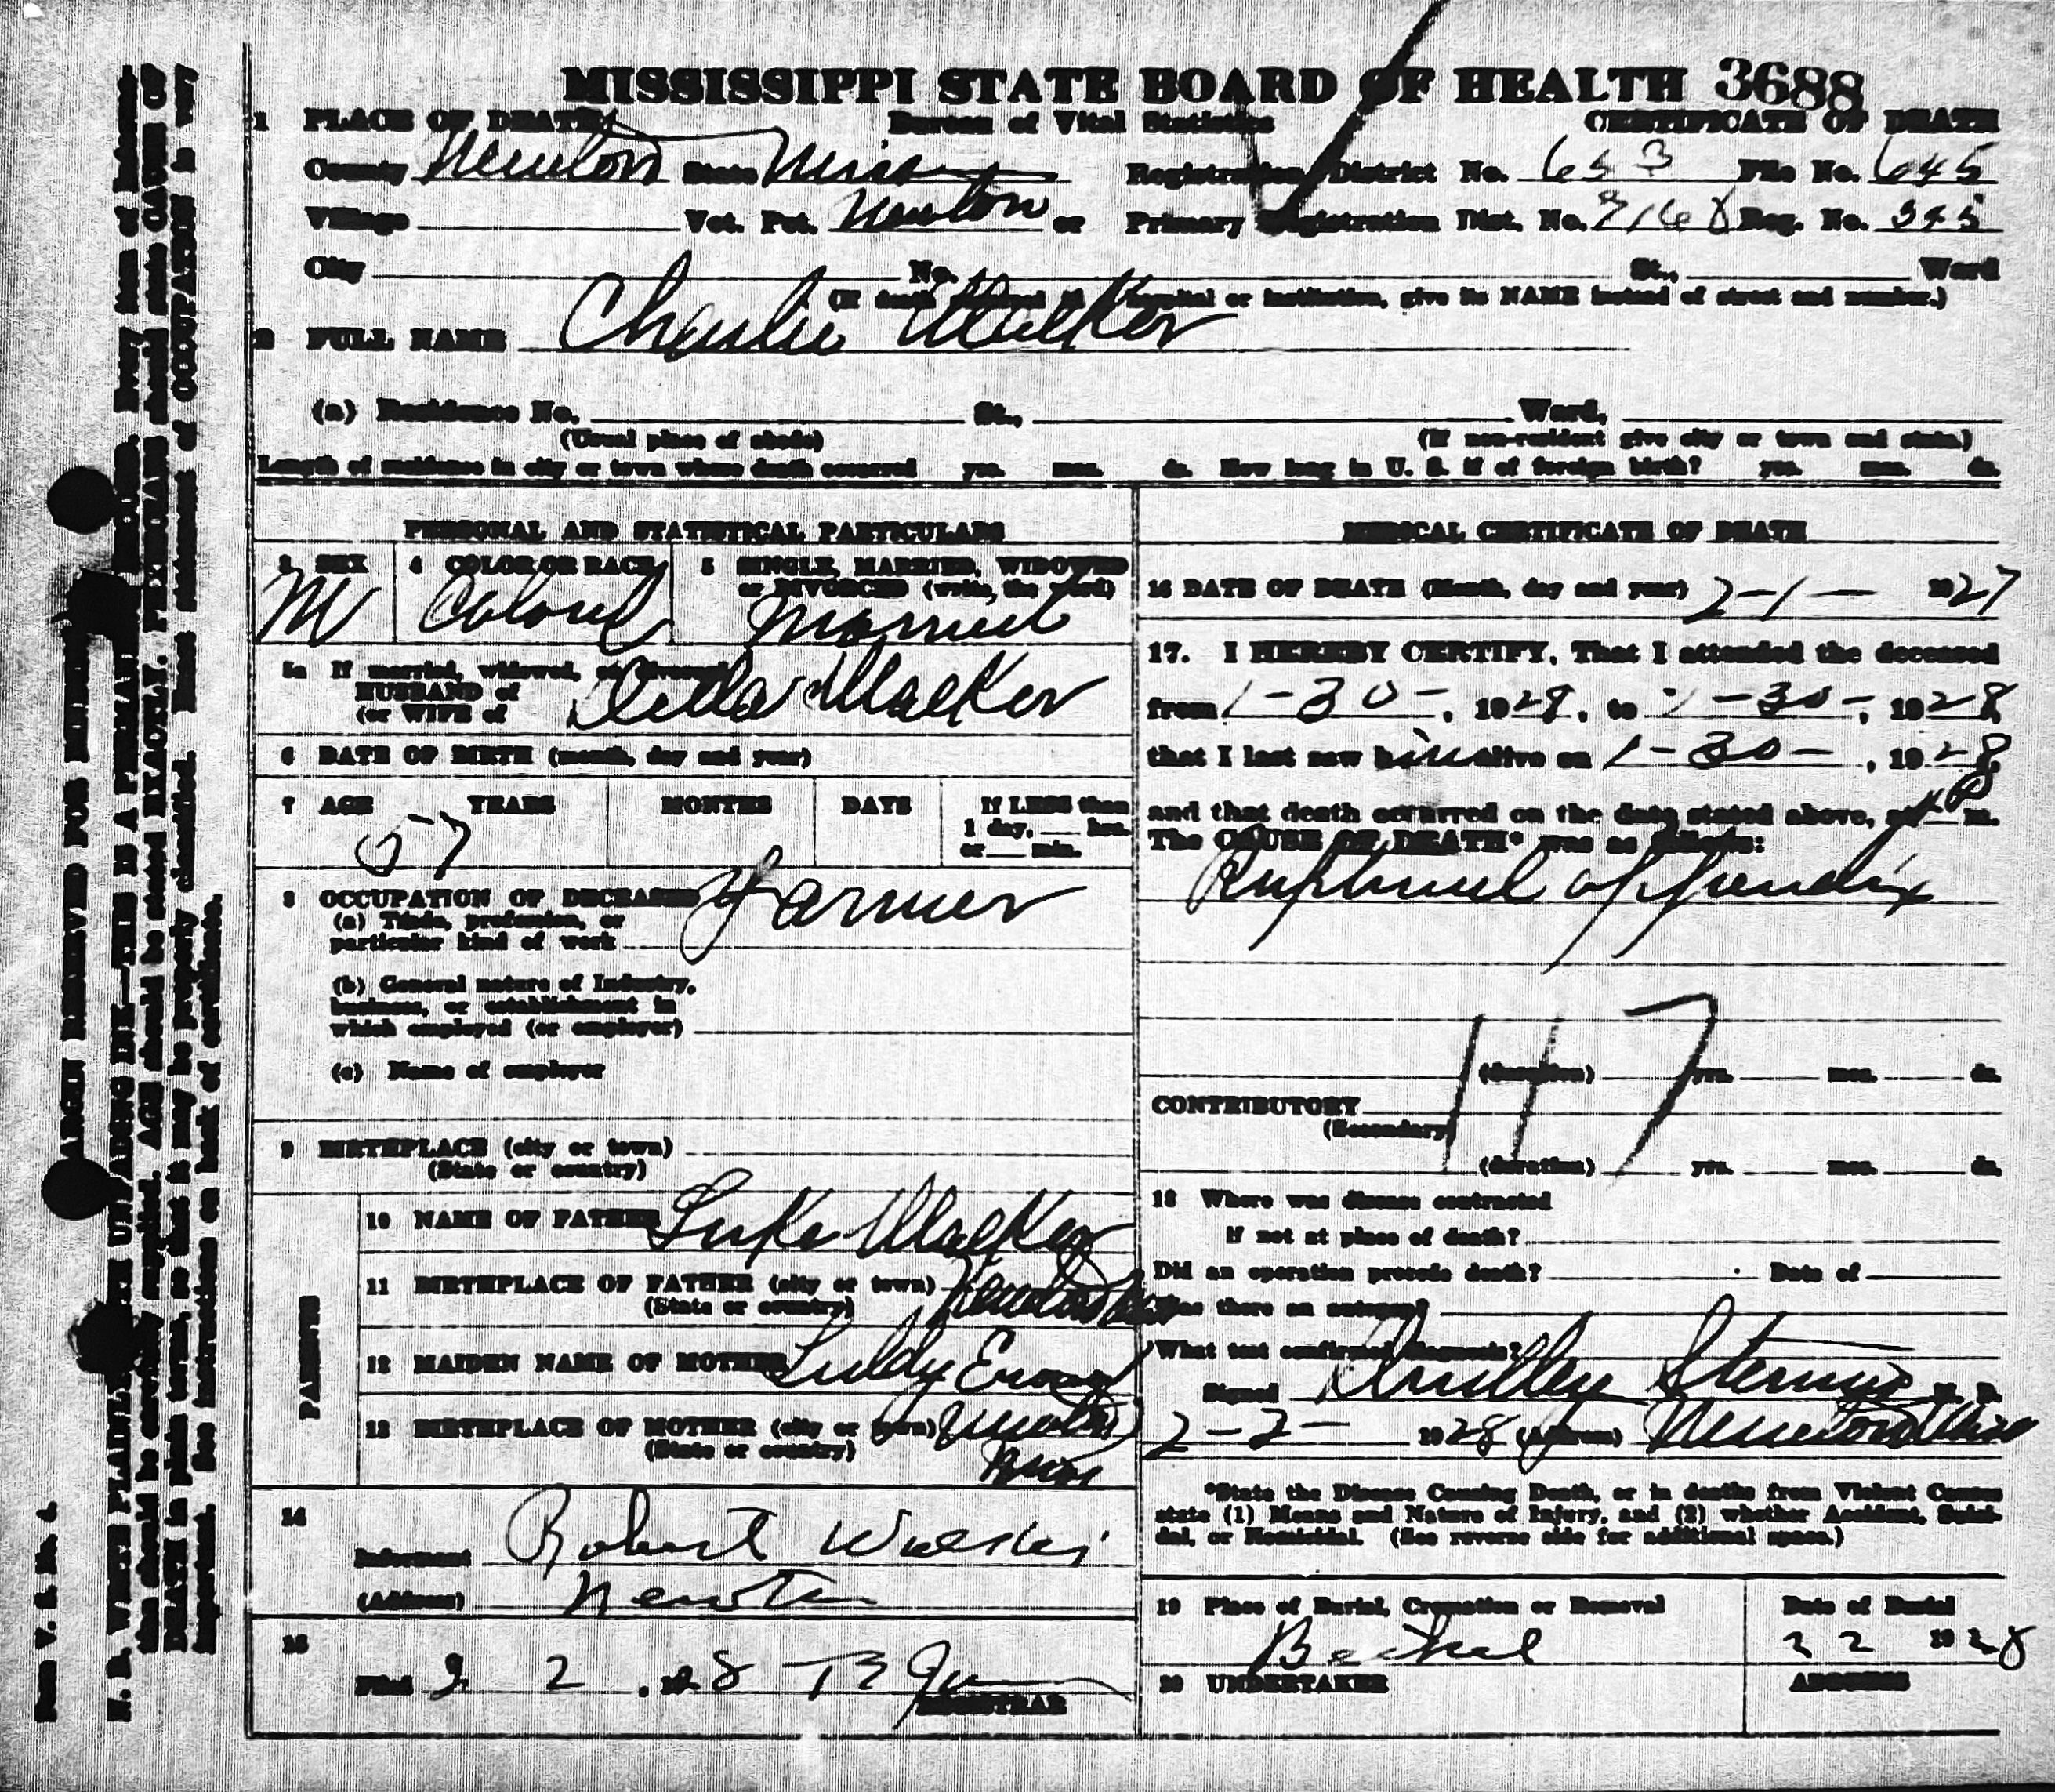 MISSISSIPPI STATE BOARD OF HEALTH 3688
1 PLACE OF DEATH Bureau of Vital Statistics CERTIFICATE OF DEATH
County Newton State Miss Registration District No. 653 File No. 645
Village Vot. Pct. Newton or Primary Registration Dist. No. Reg. No. 345
City No. St., Ward
(If death occurred in hospital or institution, give its NAME instead of street and number.)
2 FULL NAME Charlie Walker
(a) Residence No. St., Ward,
(Usual place of abode) (If non-resident give city or town and state.)
Length of residence in city or town where death occurred yrs. mos. ds. How long in U. S. if of foreign birth? yrs. mos. ds.
PERSONAL AND STATISTICAL PARTICULARS
3 SEX 4 COLOR OR RACE 5 SINGLE, MARRIED, WIDOWED
or DIVORCED (write, the word)
M Colored Married
5a If married, widowed, or divorced
HUSBAND of
(or WIFE of Walker
6 DATE OF BIRTH (month, day and year)
7 AGE YEARS MONTHS DAYS If LESS than
1 day, hrs.
or min.
57
8 OCCUPATION OF DECEASED Farmer
(a) Trade, profession, or
particular kind of work
(b) General nature of Industry,
business, or establishment in
which employed (or employer)
(c) Name of employer
9 BIRTHPLACE (city or town)
(State or country)
PARENTS
10 NAME OF FATHER Luke Walker
11 BIRTHPLACE OF FATHER (city or town) Newton Miss
(State or country)
12 MAIDEN NAME OF MOTHER
13 BIRTHPLACE OF MOTHER (city or town) Newton
(State or country) Miss
14
Informant Robert
(Address) Newton
15
Filed 2 2, 1928
REGISTRAR
MEDICAL CERTIFICATE OF DEATH
16 DATE OF DEATH (Month, day and year) 2-1- 1927
17. I HEREBY CERTIFY, That I attended the deceased
from 1-30-, 1928, to 1-30-, 1928,
that I last saw him alive on 1-30-, 1928,
and that death occurred on the date stated above, at P m.
The CAUSE OF DEATH* was as follows:
Ruptured appendix
117
(duration) yrs. mos. ds.
CONTRIBUTORY
(Secondary)
(duration) yrs. mos. ds.
18 Where was disease contracted
if not at place of death?
Did an operation precede death? Date of
Was there an autopsy?
What test confirmed diagnosis?
Signed Dudley Stennis M. D.
2-2- 1928 (Address) Newton Miss
*State the Disease Causing Death, or in deaths from Violent Causes
state (1) Means and Nature of Injury, and (2) whether Accident, Suici-
dal, or Homicidal. (See reverse side for additional space.)
19 Place of Burial, Cremation or Removal Date of Burial
Bethel 2 2 1928
20 UNDERTAKER ADDRESS
MARGIN RESERVED FOR BINDING
N. B. WRITE PLAINLY, WITH UNFADING INK—THIS IS A PERMANENT RECORD. Every item of informa-
tion should be carefully supplied. AGE should be stated EXACTLY. PHYSICIANS should state CAUSE OF
DEATH in plain terms, so that it may be properly classified. Exact statement of OCCUPATION is very
important. See instructions on back of certificate.
Form V. S. No. 4.